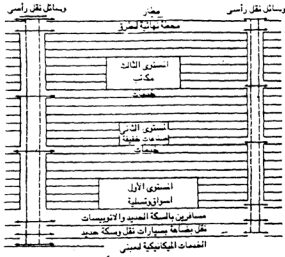 وسائل نقل رأسى
مطار
وسائل نقل رأسى
محطة نهائية لطرق
المستوى الثالث
مكاتب
خدمات
المستوى الثانى
صناعات خفيفة
خدمات
المستوى الأول
اسواق وتسلية
مسافرين بالسكة الحديد والاتوبيسات
نقل بضاعة بسيارات نقل وسكة حديد
الخدمات الميكانيكية للمبنى